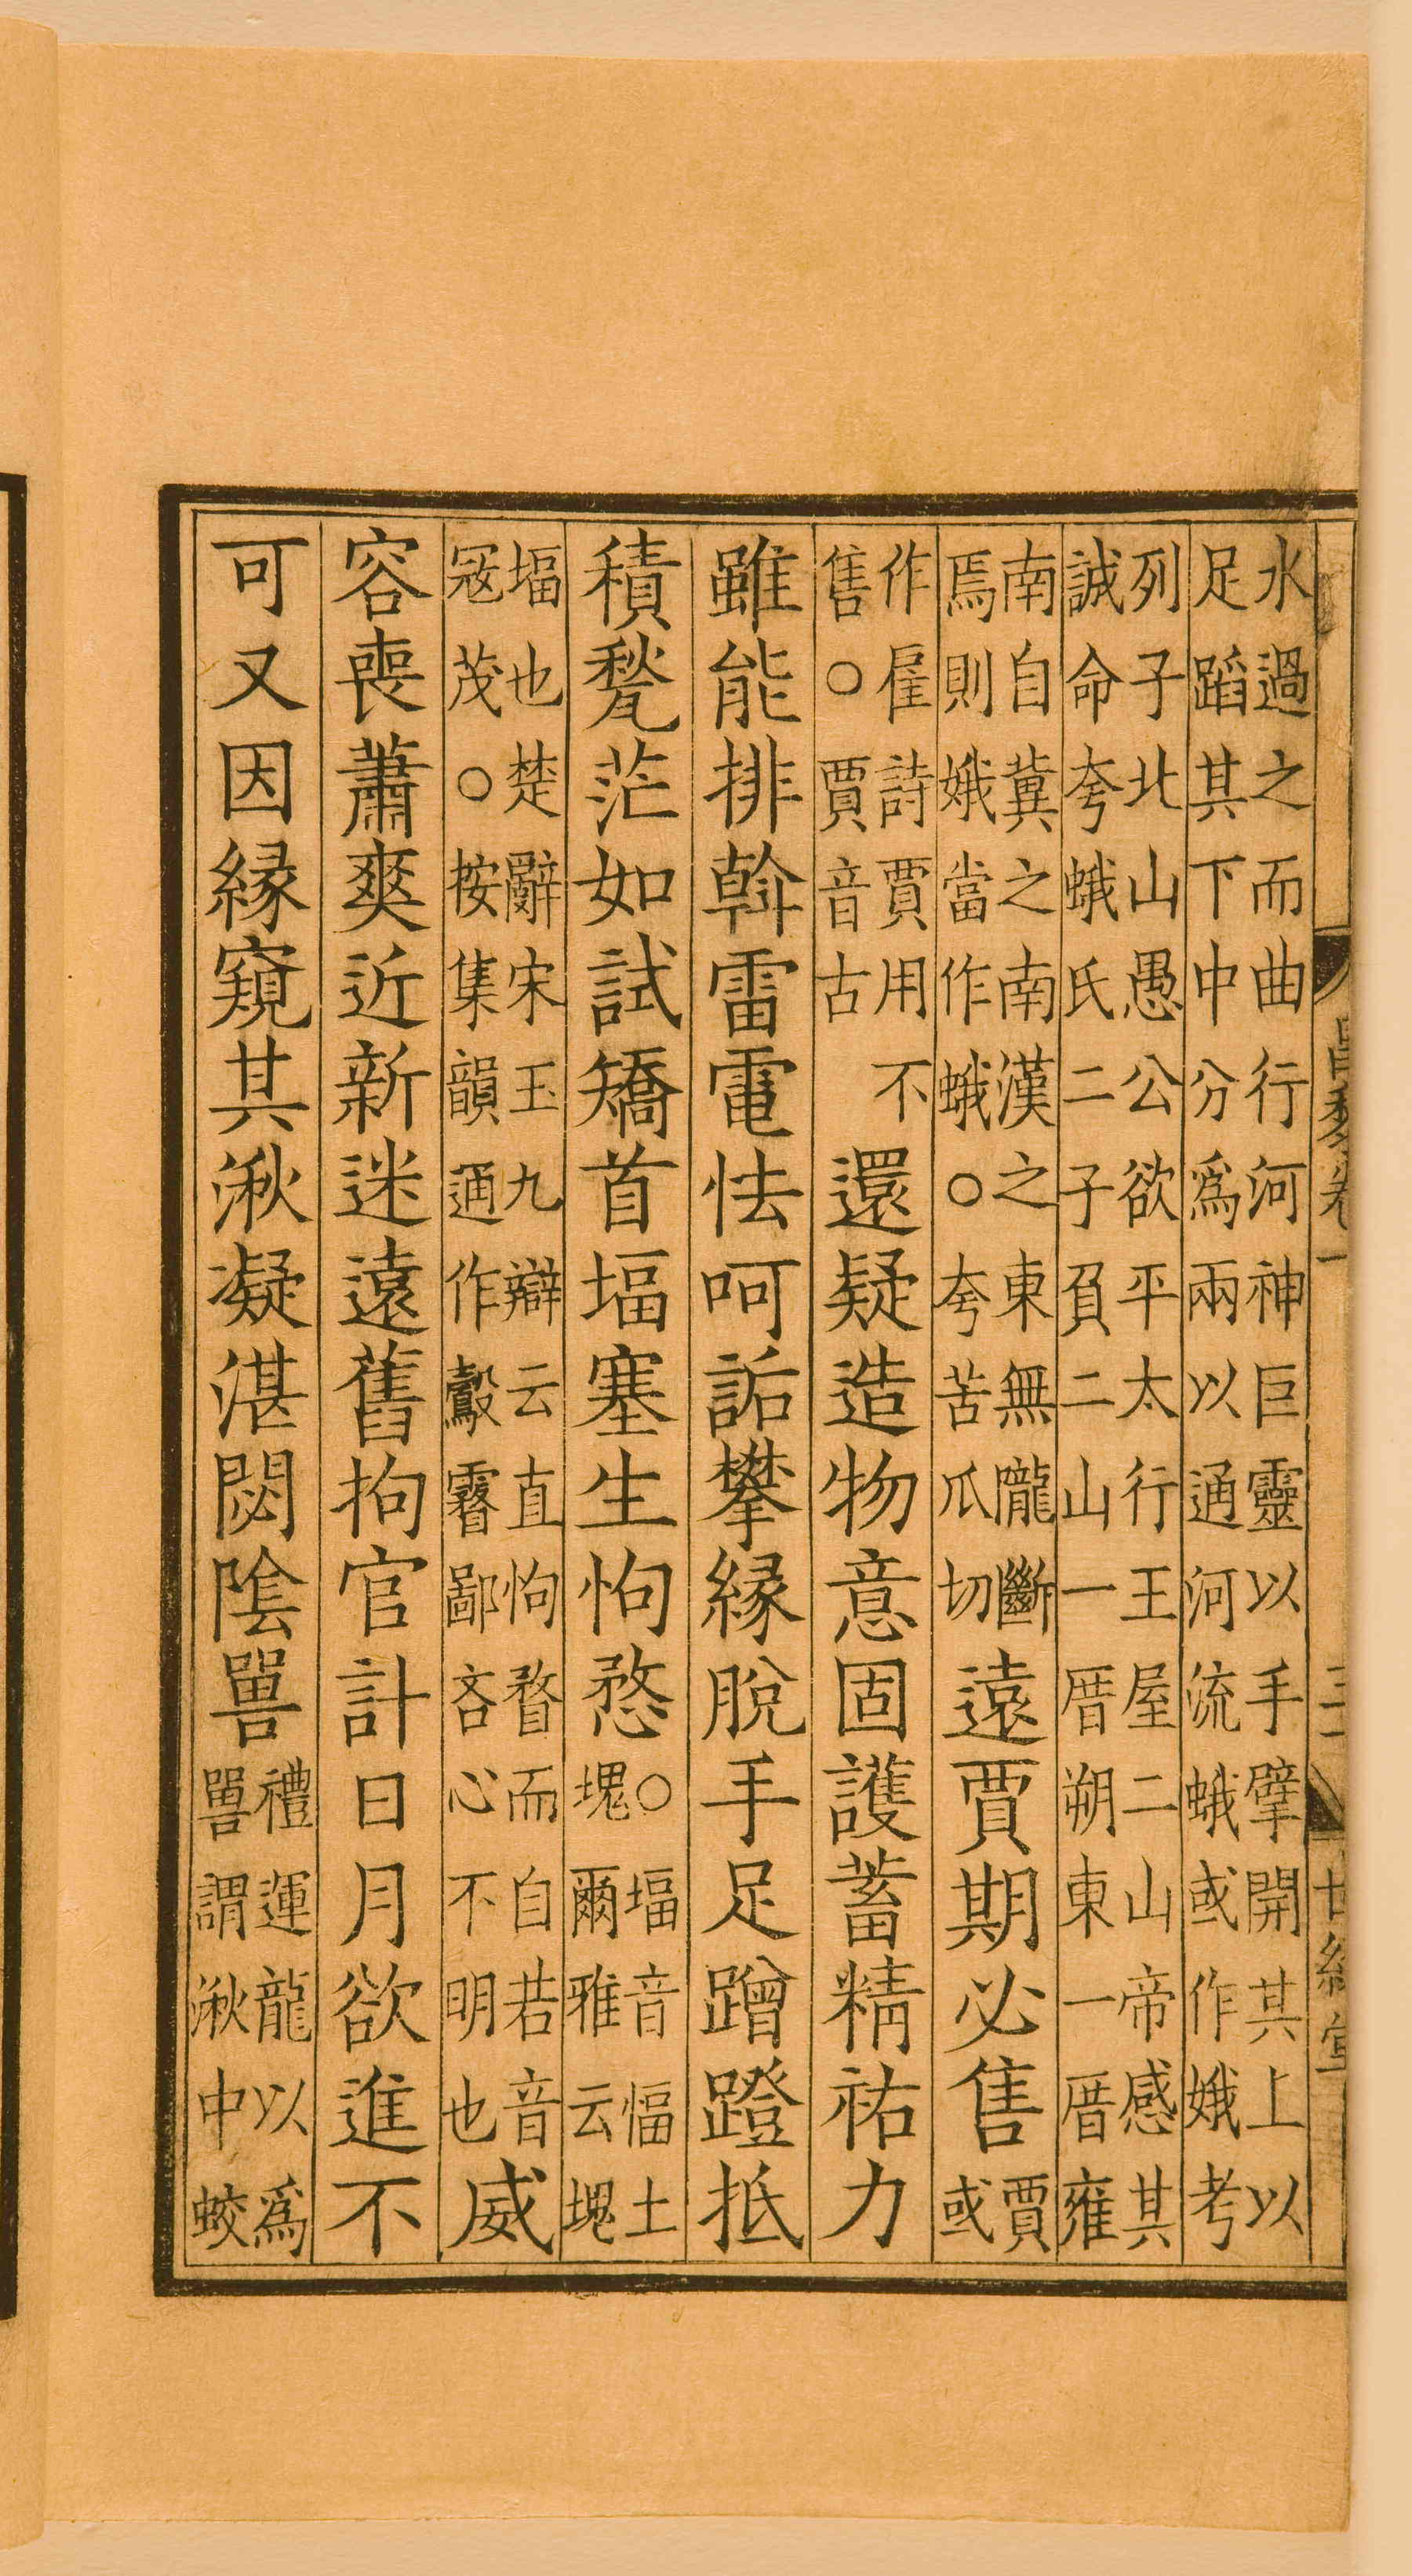 水過之而曲行河神巨靈以手擘開其上以
足蹈其下中分爲兩以通河流蛾或作娥考
列子北山愚公欲平太行王屋二山帝感其
誠命夸蛾氏二子負二山一厝朔東一厝雍
南自冀之南漢之東無隴斷
焉則娥當作蛾○夸苦瓜切
遠賈期必售
賈
或
作雇詩賈用不
售○賈音古
還疑造物意固護蓄精祐力
雖能排斡雷電怯呵詬攀緣脫手足蹭蹬抵
積甃茫如試矯首堛塞生怐愗
○堛音愊土
塊爾雅云塊
堛也楚辭宋玉九辯云直怐瞀而自若音
冦茂○按集韻通作鷇霿鄙吝心不明也
威
容喪蕭爽近新迷遠舊拘官計日月欲進不
可又因緣窺其湫凝湛閟陰嘼
禮運龍以爲
嘼謂湫中蛟